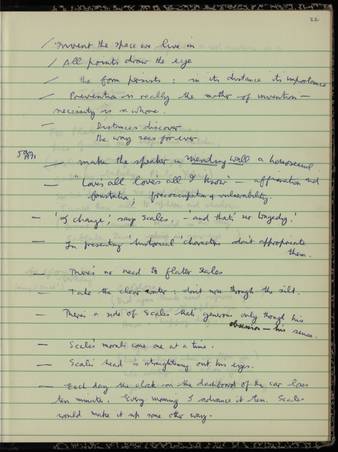 22
/ Invent the space we live in
/ All points draw the eye
/ the form persists : in its distance its importance
/ Prevention is really the mother of invention –
necessity is a whore.
– Distances discover
the way sees for ever
5/9/91
– make the speaker in Mending Wall a homosexual
– "Love's all love's all I know" – affirmation and
limitation; preoccupation & vulnerability.
– 'I change', says Scales, – 'and that's no tragedy.'
– In presenting 'historical' characters don't appropriate
them.
– There's no need to flatter Scales
– Take the clear water : don't row through the silt.
– There's a side of Scales that's generous only though his
obsession – his sense.
– Scales's months come one at a time.
– Scales' head is straightening out his eyes.
– Each day the clock on the dashboard of the car loses
ten minutes. Every morning I advance it ten. Scales
would make it up some other way.